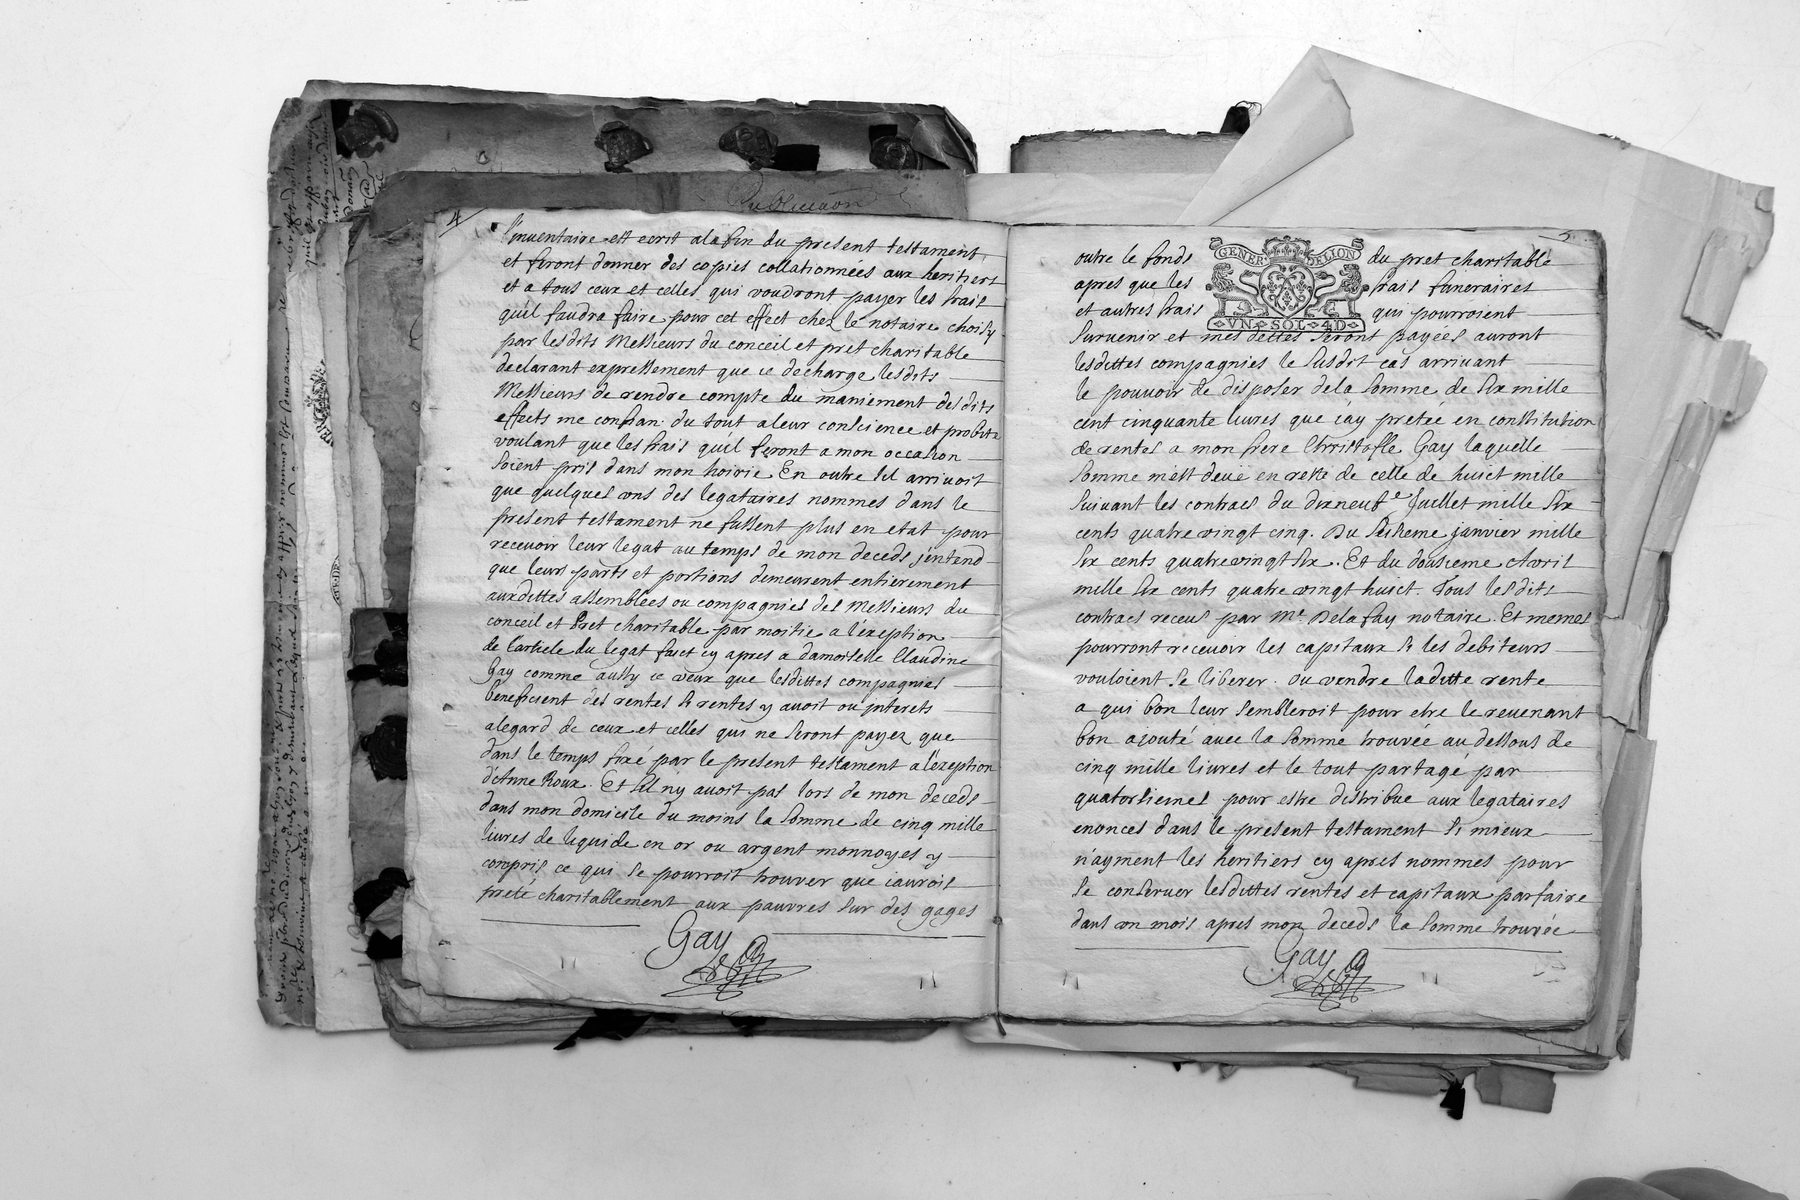 4
l'inuentaire est ecrit ala fin du present testament,
et feront donner des copies collationnées aux heritiers
et a tous ceux et celles qui voudront payer les frais
quil faudra faire pour cet effect chez le notaire choisy
par lesdits Messieurs du conceil et pret charitable
declarant expressement que ie decharge lesdits
Messieurs de rendre compte du maniement desdits
effects me confian du tout aleur conscience et probite
voulant que les frais quil feront a mon occasion
soient pris dans mon hoirie. En outre sil arrivoit
que quelques vns des legataires nommes dans le
present testament ne fussent plus en etat pour
recevoir leur legat au temps de mon deceds j'entend
que leurs parts et portions demeurent entierement
auxdittes assemblées ou compagnies des Messieurs du
conceil et Pret charitable par moitie a l'exeption
de l'article du legat faict cy apres a damoiselle Claudine
Gay comme aussy ie veux que lesdittes compagnies
beneficient des rentes si rentes y auoit ou jnterets
alegard de ceux et celles qui ne seront payez que
dans le temps fixé par le present testament a l'exeption
d'Anne Roux. Et sil n'y auoit pas lors de mon deceds
dans mon domicile du moins la somme de cinq mille
liures de liquide en or ou argent monnoyes y
compris ce qui se pourroit trouver que iaurois
preté charitablement aux pauvres sur des gages
Gay
5
GENER DELION
VN SOL 4D
outre le fonds du pret charitable
apres que les frais funeraires
et autres frais qui pourroient
survenir et mes dettes seront payées auront
lesdittes compagnies le susdit cas arrivant
le pouvoir de disposer dela somme de six mille
cent cinquante liures que iay pretée en constitution
de rentes a mon frere Christofle Gay laquelle
somme mest deüe en reste de celle de huict mille
suivant les contracs du dixneufe Juillet mille six
cents quatre vingt cinq. Du seiseme janvier mille
six cents quatrevingt six. Et du dousieme Avril
mille six cents quatre vingt huict. Tous lesdits
contracs receus par Mr. Delafay notaire. Et memes
pourront recevoir les capitaux si les debiteurs
vouloient se liberer. ou vendre laditte rente
a qui bon leur sembleroit pour etre le revenant
bon ajouté avec la somme trouvee au dessous de
cinq mille livres et le tout partagé par
quatorsiemes pour estre distribue aux legataires
enonces dans le present testament si mieux
n'ayment les heritiers cy apres nommes pour
se conserver lesdittes rentes et capitaux parfaire
dans vn mois apres mon deceds la somme trouvée
Gay